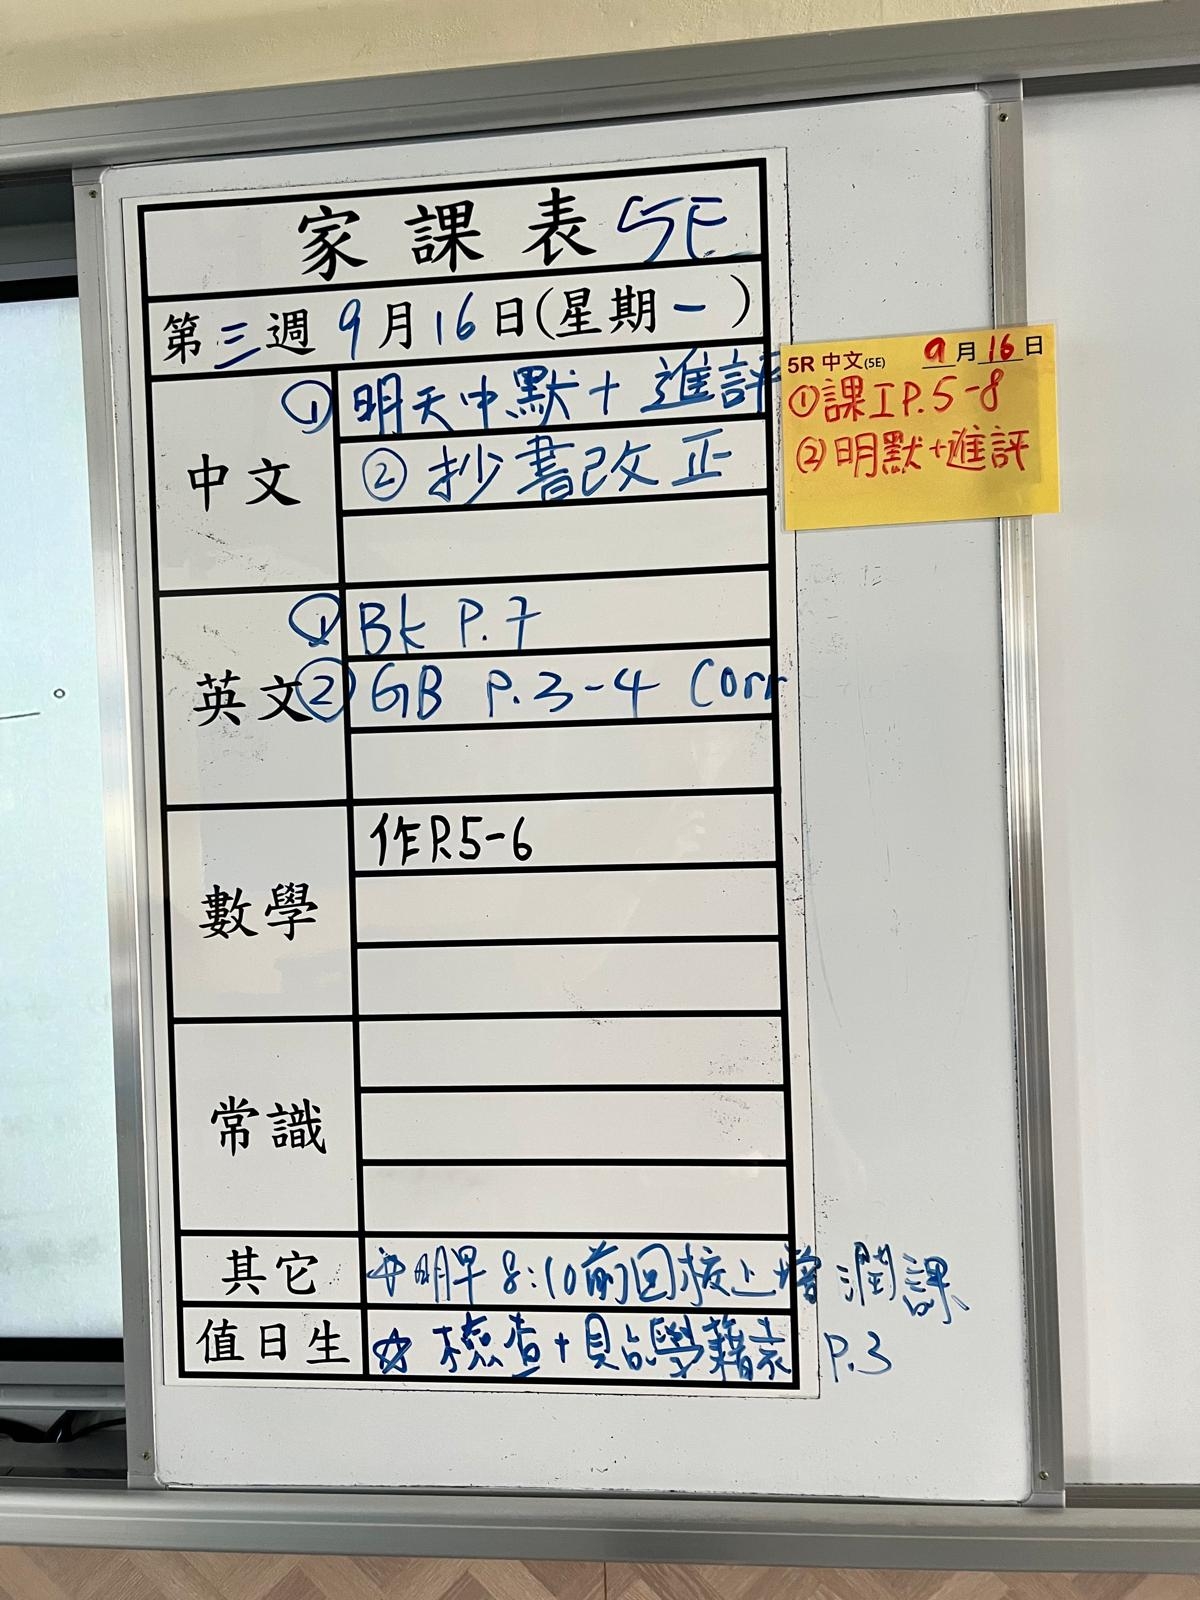 家課表 5E
第三週 9月16日(星期一)
中文
① 明天中默+進評
② 抄書改正
5R 中文(5E) 9月16日
①課工P.5-8
②明默+進評
英文
① Bk P.7
② GB P.3-4 Corr
數學
作P.5-6
常識
其它
明早8:10前回校上增潤課
值日生
☆ 檢查+貝占學籍表 P.3